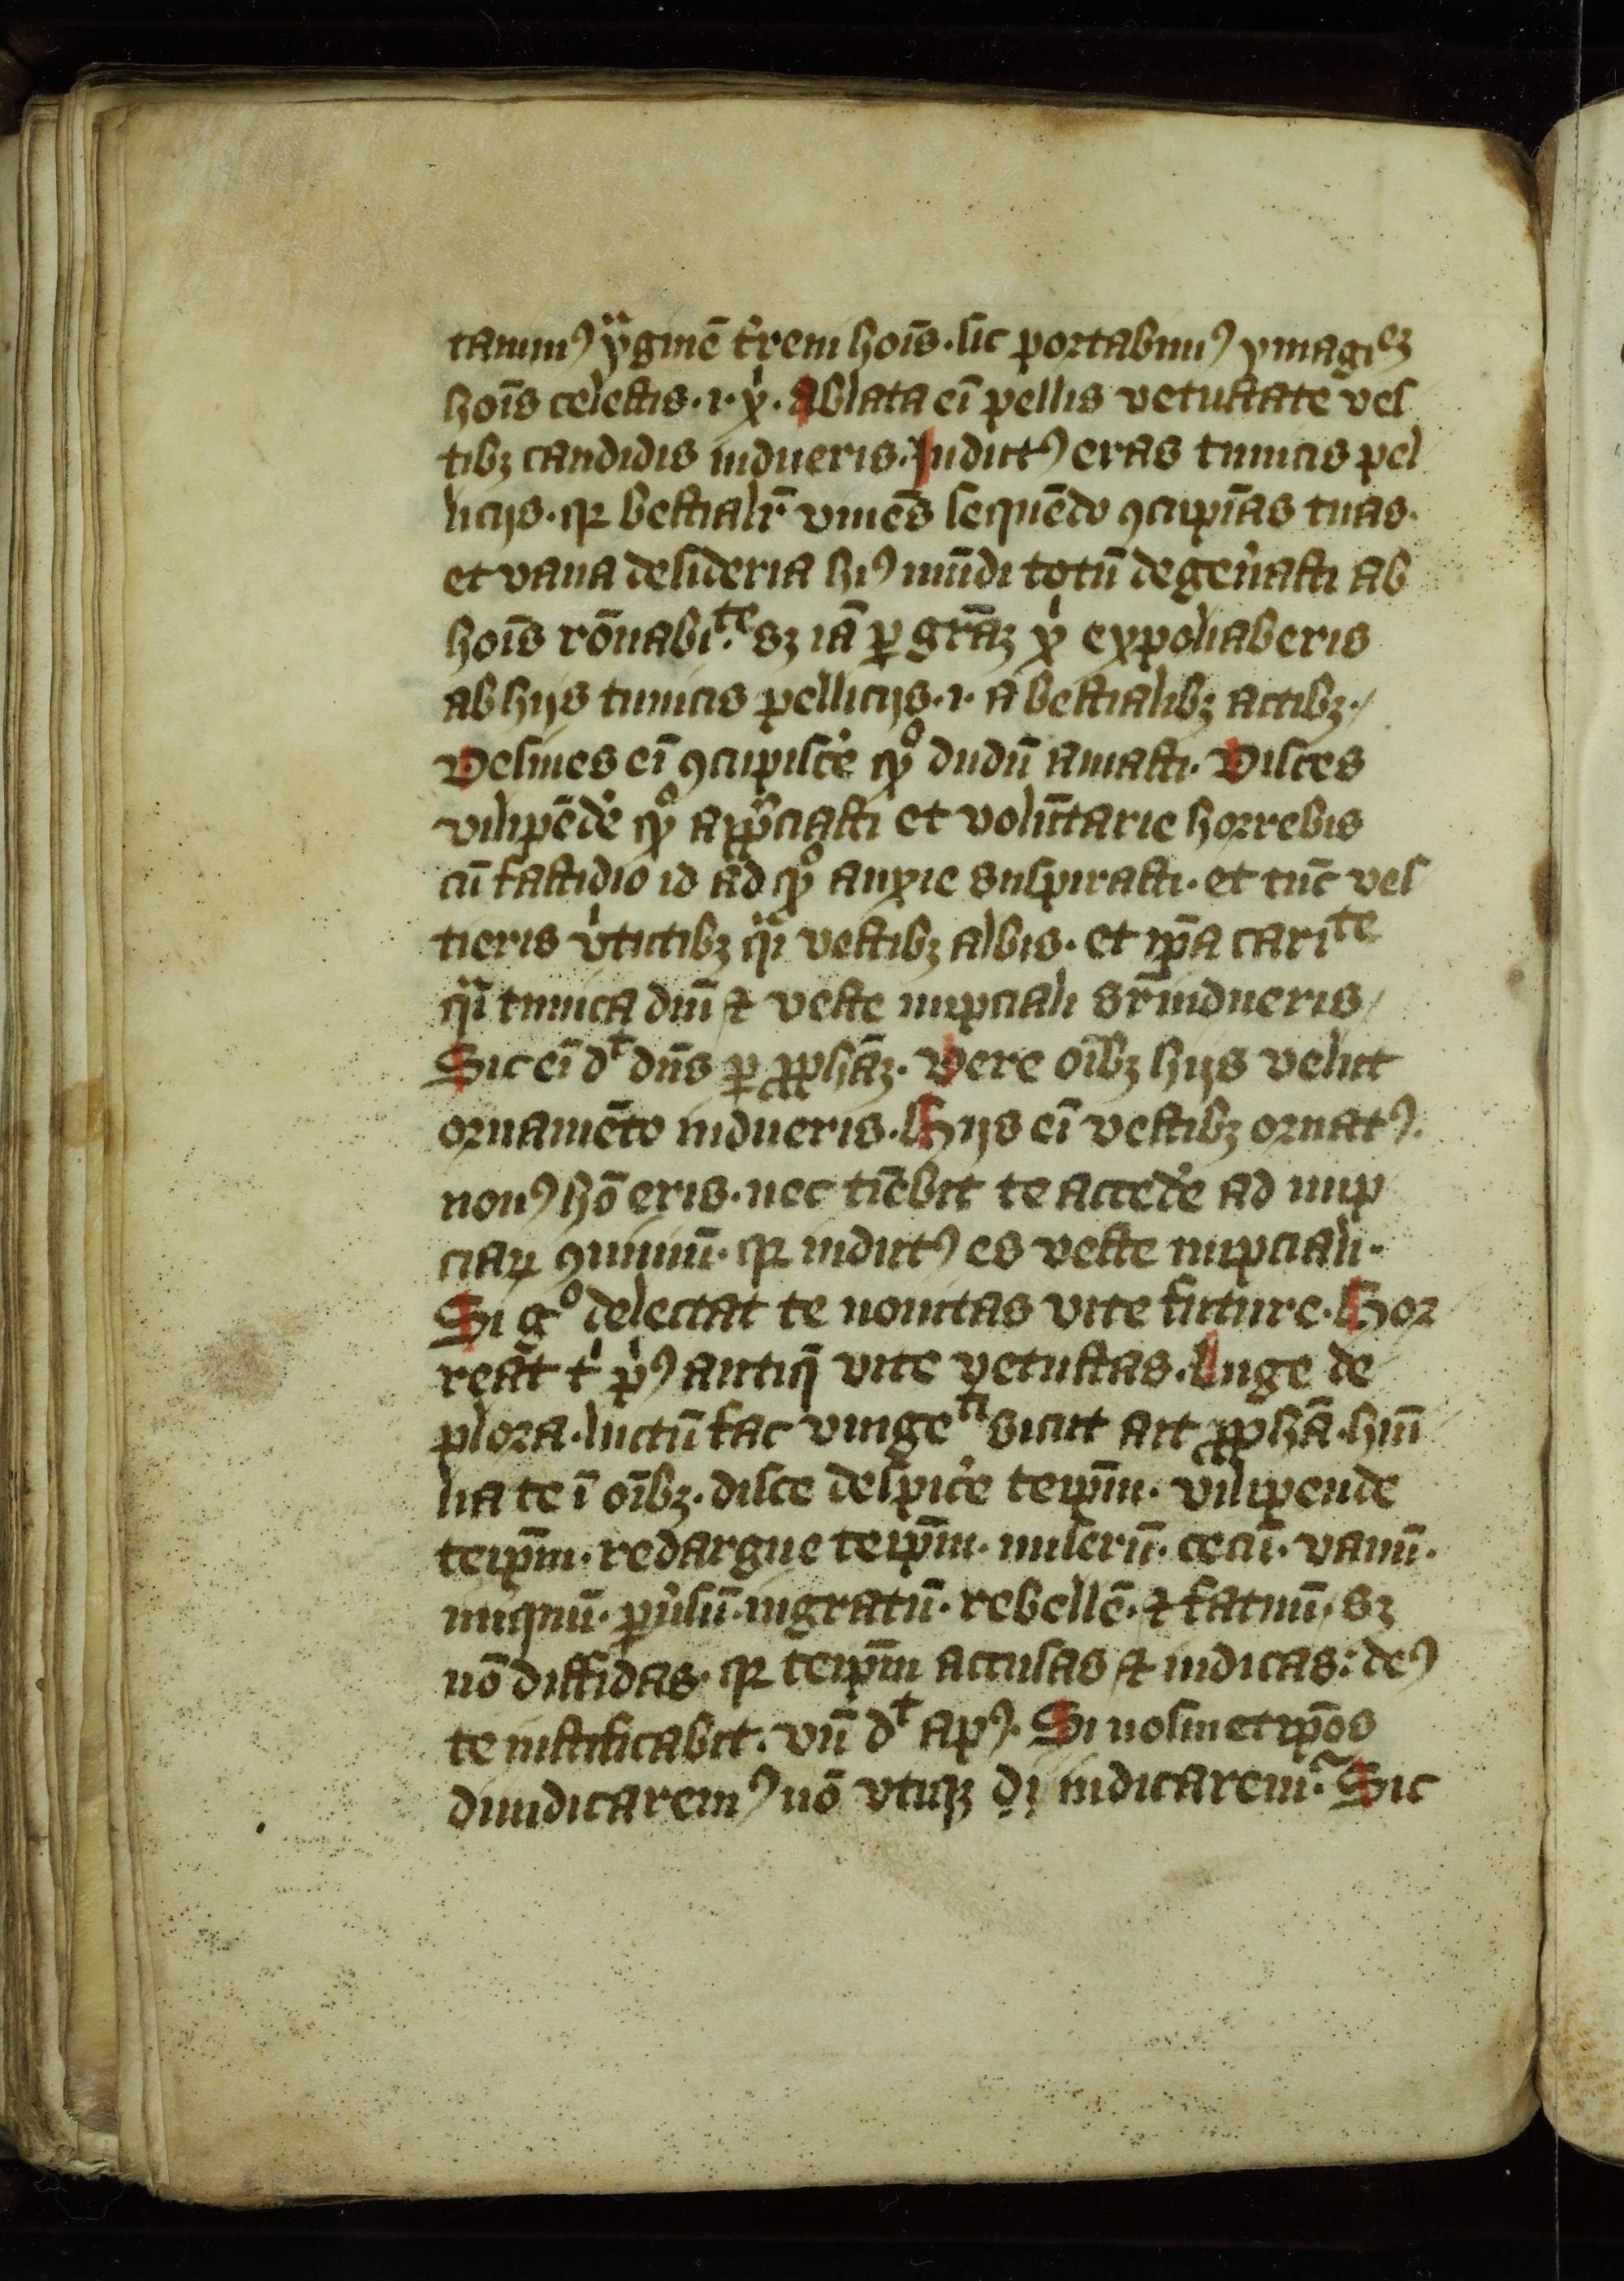 tauimꝰ ẏginē t'reni hoīs. sic portabimꝰ ymagiēꝫ
hoīs celestis .i. xp̄i. Ablata eī pellis vetustate ves
tibꝫ candidis indueris. Indutꝰ eras tunicis pel
licijs. qꝛ bestialit̄ viuēs sequēdo ꝯcupīas tuas.
et vana desideria hiꝰ mūdi totū degen'asti ab
hoīs rōnabiᵗᵉ. sꝫ iā ꝑ grāꝫ xp̄i expoliaberis
ab hijs tunicis pellicijs .i. a bestialibꝫ actibꝫ./
Desines eī ꝯcupisc'e qͦ dudū amasti. Disces
vilipēd'e qͦ app̄ciasti et volūtarie horrebis
cū fastidio id ad qͦ anxie suspirasti. et tūc ves
tieris v'tutibꝫ qͣi vestibꝫ albis. et ip̄a cariᵗᵉ
qͣi tunica dn̄i ⁊ veste nupciali sr̄indueris/
Sic eī dᵗ dn̄s ꝑ ꝓphāꝫ. Vere oībꝫ hijs velut
ornamēto indueris. Hijs eī vestibꝫ ornatꝰ.
nouꝰ hō eris. nec timēbit te acced'e ad nup
ciaꝝ ꝯuiuiū. qꝛ indutꝰ es veste nupciali.
Si gͦ delectat te nouitas vite future. Hor
reāt tⁱ pⁱꝰ antiq̄ vite vetustas. Luge de
plora. luctū fac vnigeᵗⁱ sicut ait ꝓphā. hūi
lia te ī oībꝫ. disce despic'e teip̄m. vilipende
teip̄m. redargue teip̄m. miserū. cecū. vanū.
iniquū. p'uersū. ingratū. rebellē. ⁊ fatuū. sꝫ
nō diffidas. qꝛ teip̄m accusas ⁊ iudicas: deꝰ
te iustificabit. vn̄ dᵗ apꝰ. Si nosmetip̄os
diiudicaremꝰ nō vtiqꝫ dij iudicarem̄. Sic